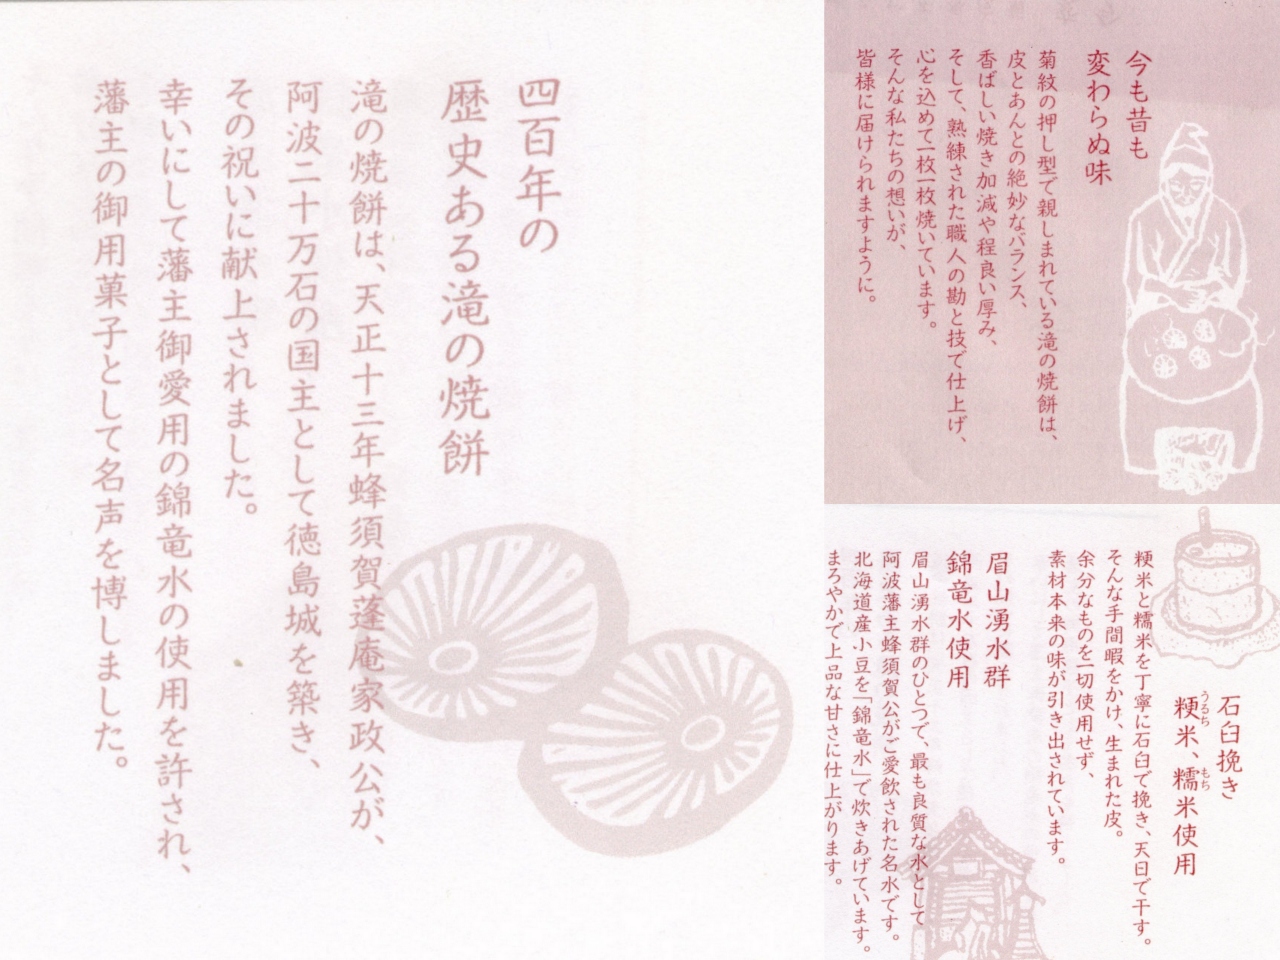 四百年の
歴史ある滝の焼餅
滝の焼餅は、天正十三年蜂須賀蓬庵家政公が、
阿波二十万石の国主として徳島城を築き、
その祝いに献上されました。
幸いにして藩主御愛用の錦竜水の使用を許され、
藩主の御用菓子として名声を博しました。
今も昔も
変わらぬ味
菊紋の押し型で親しまれている滝の焼餅は、
皮とあんとの絶妙なバランス、
香ばしい焼き加減や程良い厚み、
そして、熟練された職人の勘と技で仕上げ、
心を込めて一枚一枚焼いています。
そんな私たちの想いが、
皆様に届けられますように。
石臼挽き
粳米、糯米使用
うるち
もち
粳米と糯米を丁寧に石臼で挽き、天日で干す。
そんな手間暇をかけ、生まれた皮。
余分なものを一切使用せず、
素材本来の味が引き出されています。
眉山湧水群
錦竜水使用
眉山湧水群のひとつで、最も良質な水として
阿波藩主蜂須賀公がご愛飲された名水です。
北海道産小豆を「錦竜水」で炊きあげています。
まろやかで上品な甘さに仕上がります。